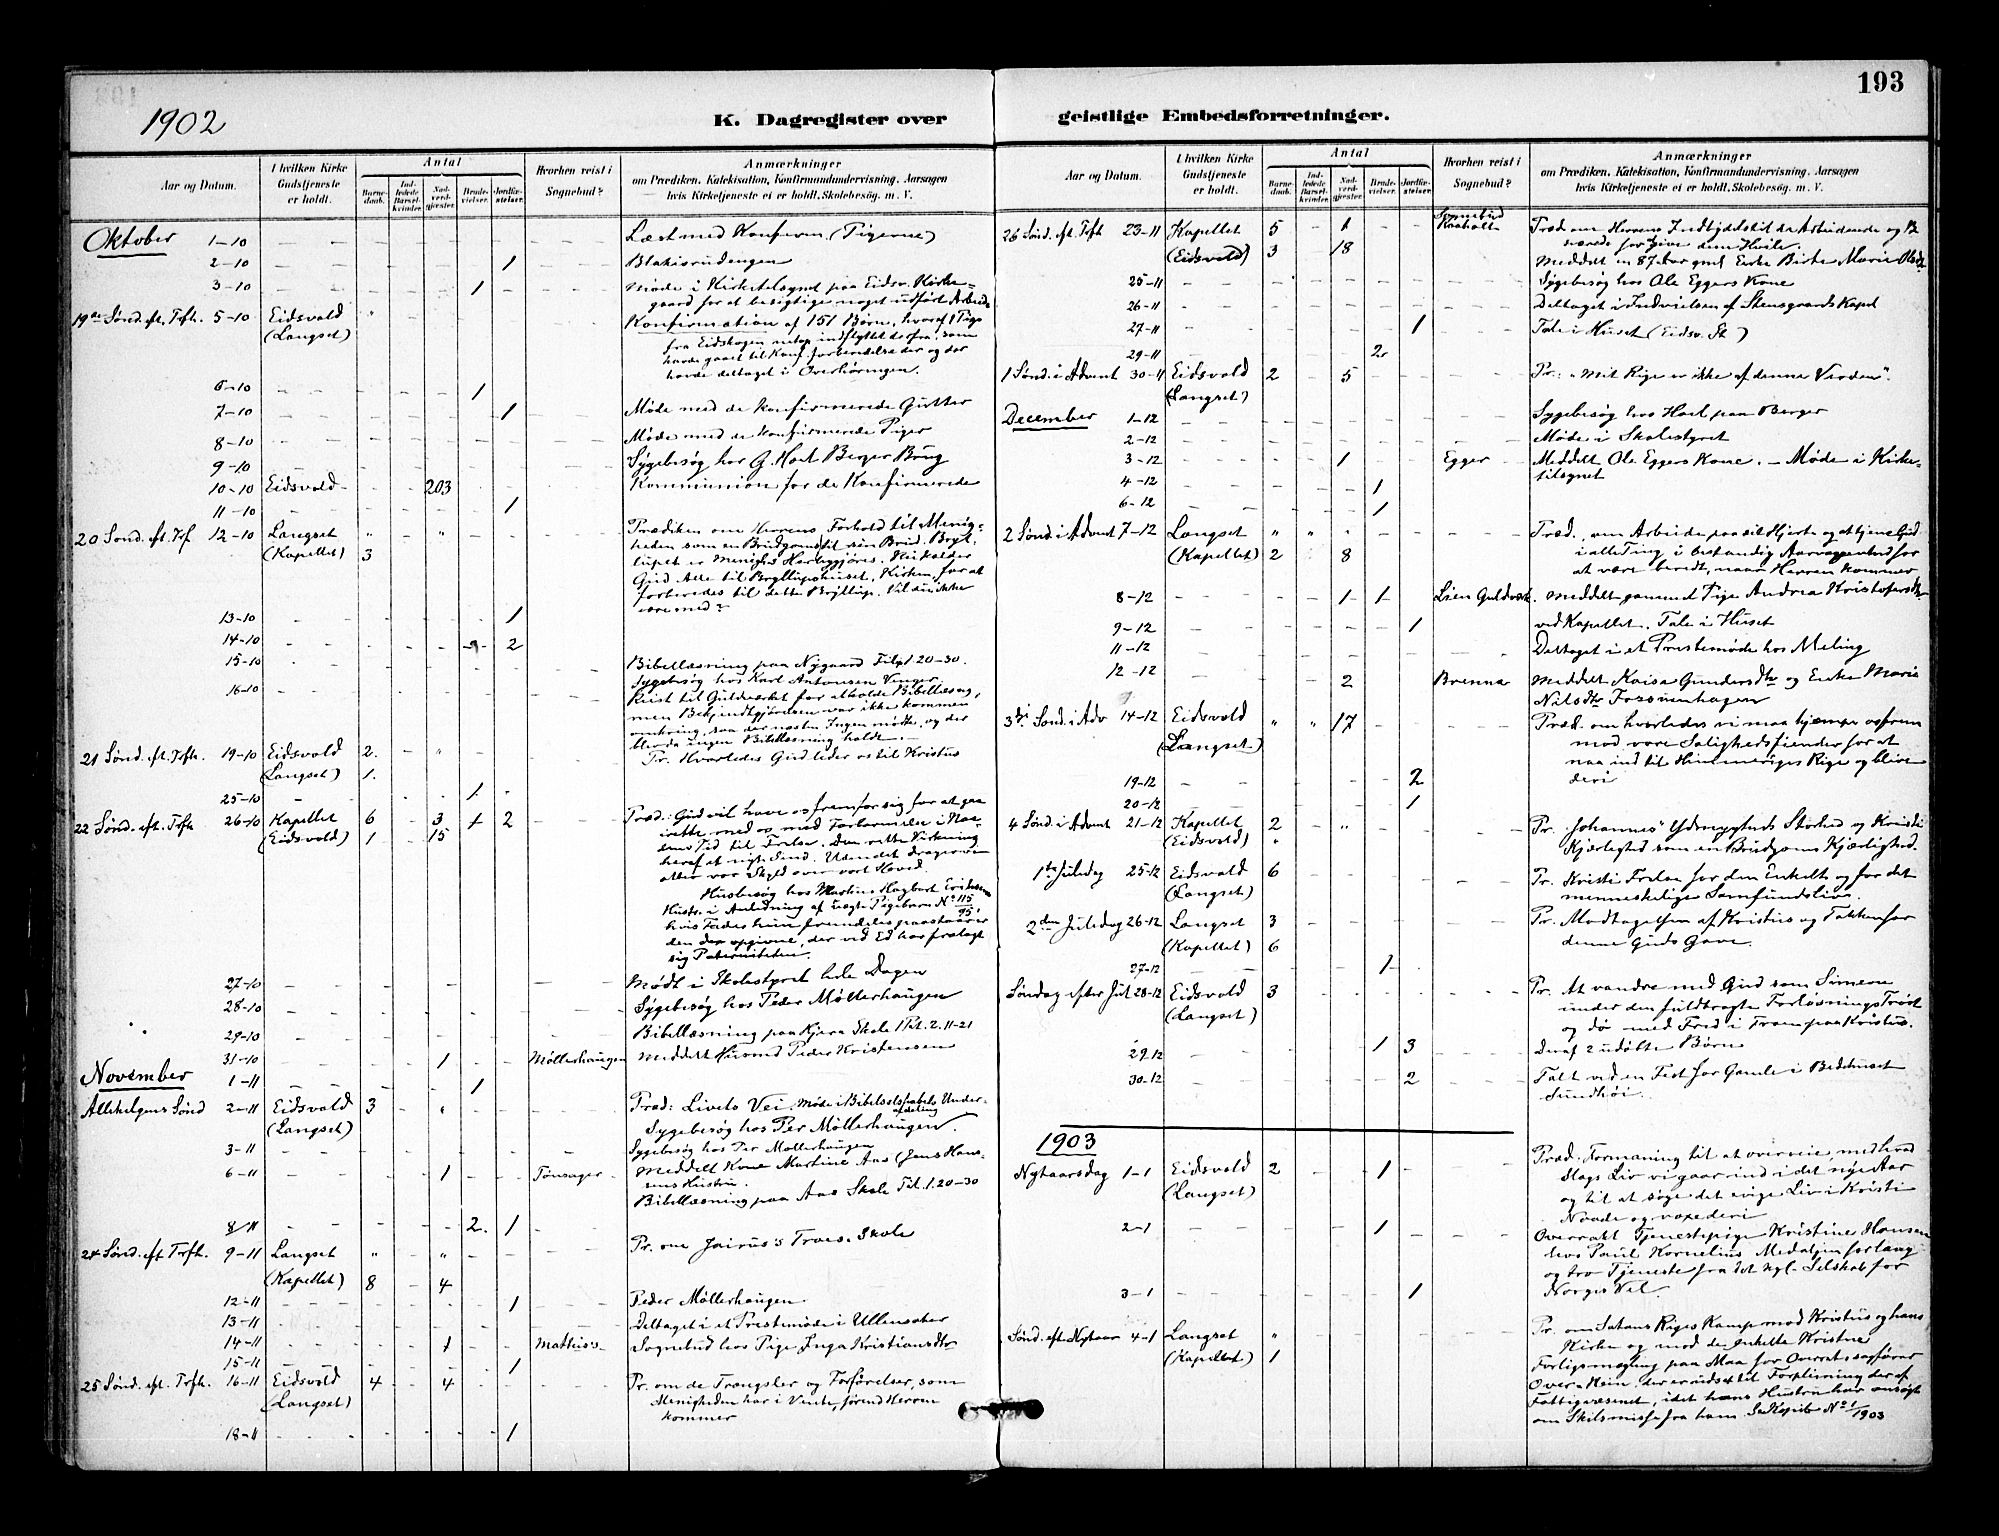 193
1902
K. Dagregister over geistlige Embedsforretninger.
Aar og Datum. I hvilken Kirke Gudstjeneste er holdt. Antal Barnedaab. Indledede Barselkvinder. Nadverdgjester. Brudevielser. Jordfæstelser. Hvorhen reist i Sognebud? Anmærkninger om Prædiken, Katekisation, Konfirmandundervisning, Aarsagen hvis Kirketjeneste ei er holdt, Skolebesøg, m. V.
Oktober 1-10 Læst med Konfirm. (Pigerne)
2-10 1 Blakisrudengen
3-10 1 Møde i Kirketilsynet paa Eidsv. Kirke-
gaard for at besigtige noget udført Arbeide
19de Sønd. eft. Trfh. 5-10 Eidsvold " Konfirmation af 151 Børn, hvoraf 1 Pige
(Langset) fra Eidskogen netop indflyttet derfra, som
havde gaaet til Konf. forberedelse der og der
havde deltaget i Overhøringen.
6-10 1
7-10 1 Møde med de konfirmerede Gutter
8-10 Møde med de konfirmerede Piger
9-10 Sygebesøg hos G. Hoel Berger Brug
10-10 Eidsvold 203 Kommunion for de Konfirmerede
11-10 1
20 Sønd. eft. Trf. 12-10 Langset " " Prædiken om Herrens Forhold til Menig-
(Kapellet) 3 heden som en Brudgoms til sin Brud. Bryl-
lupet er Menighed Herliggjøres. Nu kalder
Gud Alle til Bryllupshuset, Kirken, for at
forberedes til dette Bryllup. Vil du ikke
være med?
13-10 1
14-10 2
15-10 Bibellæsning paa Nygaard Fil. 1. 20-30.
Sygebesøg hos Karl Antonsen Venger
16-10 Reist til Guldverket for at holde Bibellæsng,
men Bekjendtgjørelsen var ikke kommen
omkring, saa der næsten Ingen mødte, og der
blev da ingen Bibellæsning holdt.
21 Sønd. eft. Trfh. 19-10 Eidsvold 2. " Pr. Hvorledes Gud leder os til Kristus
(Langset) 1.
25-10 1.
22 Sønd. eft. Trfh 26-10 Kapellet 6 3 1 2 Præd.: Gud vil have os frem for sig for at gaa
(Eidsvold) 1 15 irette med os med Forbarmelse i Naa-
dens Tid til Frelse. Den rette Virkning
heraf et nyt Sind. Uden det drager vi
atter vor Skyld over vort Hoved.
Husbesøg hos Martin Hagbart Eriksens
Hustr. i Anledning af uægte Pigebarn No 115/95,
hvis Fader hun fremdeles paastaar er
den der opgivne, der ved Ed har fralagt
sig Paterniteten.
27-10 Mødt i Skolestyret hele Dagen
28-10 Sygebesøg hos Peder Møllerhaugen
29-10 Bibellæsning paa Kjera Skole 1 Pet. 2. 11-21
31-10 1 Møllerhaugen Meddelt Husmd Peder Kristensen
November 1-11 1
Allehelgens Sønd 2-11 Eidsvold 3 " Præd: Livets Vei. Møde i Bibelselskabets Under-
afdeling
(Langset) Sygebesøg hos Per Møllerhaugen.
3-11 Sygebesøg hos Per Møllerhaugen
6-11 1 Tønsager Meddelt Kone Martine Aas (Jens Han-
sens Hustru.
Bibellæsning paa Aas Skole Fil. 1. 20-30
8-11 2. 1
24 Sønd. eft. Trfh. 9-11 Langset " " Pr. om Jairus's Troes-Skole
(Kapellet) 8 4
12-11 1 Peder Møllerhaugen
13-11 Deltaget i et Prestemøde i Ullensaker
14-11 1 Mathis's Sognebud hos Pige Inga Kristiansdtr
15-11 1
25 Sønd. eft. Trfh. 16-11 Eidsvold 4 4 Pr. om de Trængsler og Forførelser, som
(Langset) Menigheden har i Vente, førend Herren
kommer
18-11 1
Aar og Datum. I hvilken Kirke Gudstjeneste er holdt. Antal Barnedaab. Indledede Barselkvinder. Nadverdgjester. Brudevielser. Jordfæstelser. Hvorhen reist i Sognebud? Anmærkninger om Prædiken, Katekisation, Konfirmandundervisning, Aarsagen hvis Kirketjeneste ei er holdt, Skolebesøg, m. V.
26 Sønd. eft. Trfh 23-11 Kapellet 5 1 Sognebud Raaholt Præd om Herrens Indbydelse til de Arbeidende og Be-
(Eidsvold) 3 18 sværede for at give dem Hvile.
Meddelt en 87 Aar gml. Enke Birte Marie
25-11 Sygebesøg hos Ole Eggers Kone
26-11 Deltaget i Indvielsen af Stensgaards Kapel
27-11 1 Tale i Huset (Eidsv. St)
29-11 2
1 Sønd. i Advent 30-11 Eidsvold 2 5 Pr: "Mit Rige er ikke af denne Verden".
(Langset)
December 1-12 Sygebesøg hos Hoel paa Berger
2-12 Møde i Skolestyret
3-12 1 Egger Meddelt Ole Eggers Kone. - Møde i Kirke-
4-12 1 tilsynet
6-12 1
2 Sønd. i Advent 7-12 Langset " " " Præd. om Arbeide paa sit Hjerte og at tjene Gud
(Kapellet) 2 8 i alle Ting i bestandig Aarvaagenhed for
at være beredt, naar Herren kommer
8-12 1 1 Lien Guldverk. Meddelt gammel Pige Andrea Kristofersdtr
9-12 1 ved Kapellet. Tale i Huset
11-12 Deltaget i et Prestemøde hos Meling
12-12 2 Brenna Meddelt Kaisa Gundersdtr og Enke Marie
Nilsdtr Fossumhagen
3die Sønd. i Adv 14-12 Eidsvold " " 17 Præd. om hvorledes vi maa kjæmpe os frem
(Langset) mod vore Saligheds fiender for at
naa ind til Himmeriges Rige og blive
deri
19-12 2
20-12 1
4 Sønd. i Advent 21-12 Kapellet 2 " Pr. Johannes' Ydmyghed Storhed og Kristi
(Eidsvold) " Kjærlighed som en Brudgoms Kjærlighed.
1ste Juledag 25-12 Eidsvold 6 Pr. Kristi Frelse for den Enkelte og for det
(Langset) menneskelige Samfundsliv.
2den Juledag 26-12 Langset 3 Pr. Modtagelsen af Kristus og Takken for
(Kapellet) 6 denne Guds Gave.
27-12 1
Søndag efter Jul 28-12 Eidsvold 3 Pr. At vandre med Gud som Simeon
(Langset) under den fuldbragte Forløsnings Trøst
og dø med Fred i Troen paa Kristus.
29-12 1 3 Deraf 2 udøbte Børn
30-12 2 Talt ved en Fest for Gamle i Bedehuset
Sundhøi.
1903
Nytaarsdag 1-1 Eidsvold 2 1 Præd: Formaning til at overveie, med hvad
(Langset) Slags Liv vi gaar ind i det nye Aar
og til at søge det evige Liv i Kristi
Naade og voxe deri
2-1 1 Overrakt Tjenestepige Kristine Hansen
hos Paul Kornelius Medaljen for lang
og tro Tjeneste fra det kgl. Selskab for
3-1 1 Norges Vel.
Sønd. eft Nytaar 4-1 Langset " Pr. om Satans Riges Kamp mod Kristus og hans
(Kapellet) 1 Kirke og mod de enkelte Kristne
Forligsmægling paa Maa for Overretssagfører
Over-Hein, der er udsat til Forpleining der af
Fattigvæsenet, idet hans Hustru har ansøgt
om Skilsmisse fra ham. Se Kopib No 1/1903